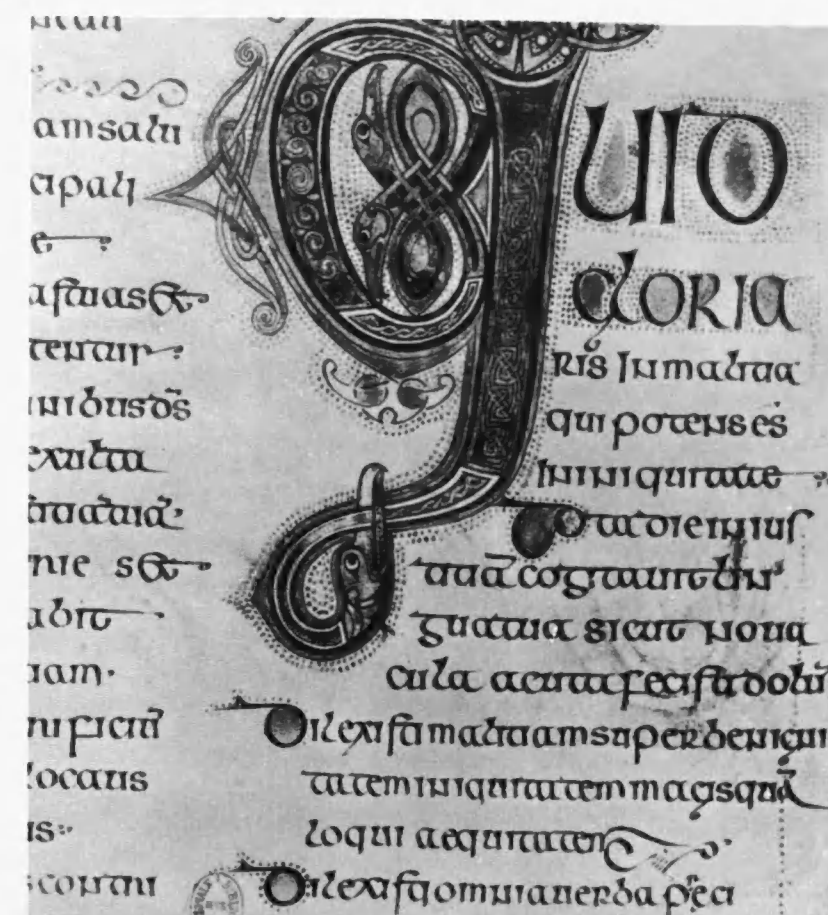 amsalu
cipali
e
astuas &
tentur
inibus d̄s
exulta
titiatuā
nie s&
abit
uam
rificiū
locaus
is
scontri
QUID
GLORIA
RIS IN malitia
qui potens es
IN iniquitate
Tota die inius
titiā cogitauit lin
gua tua sicut noua
cula acuta fecisti dolū
Dilexisti malitiam super benigni
tatem iniquitatem magis quā
loqui aequitatem
Dilexisti omnia uerba p̄eci